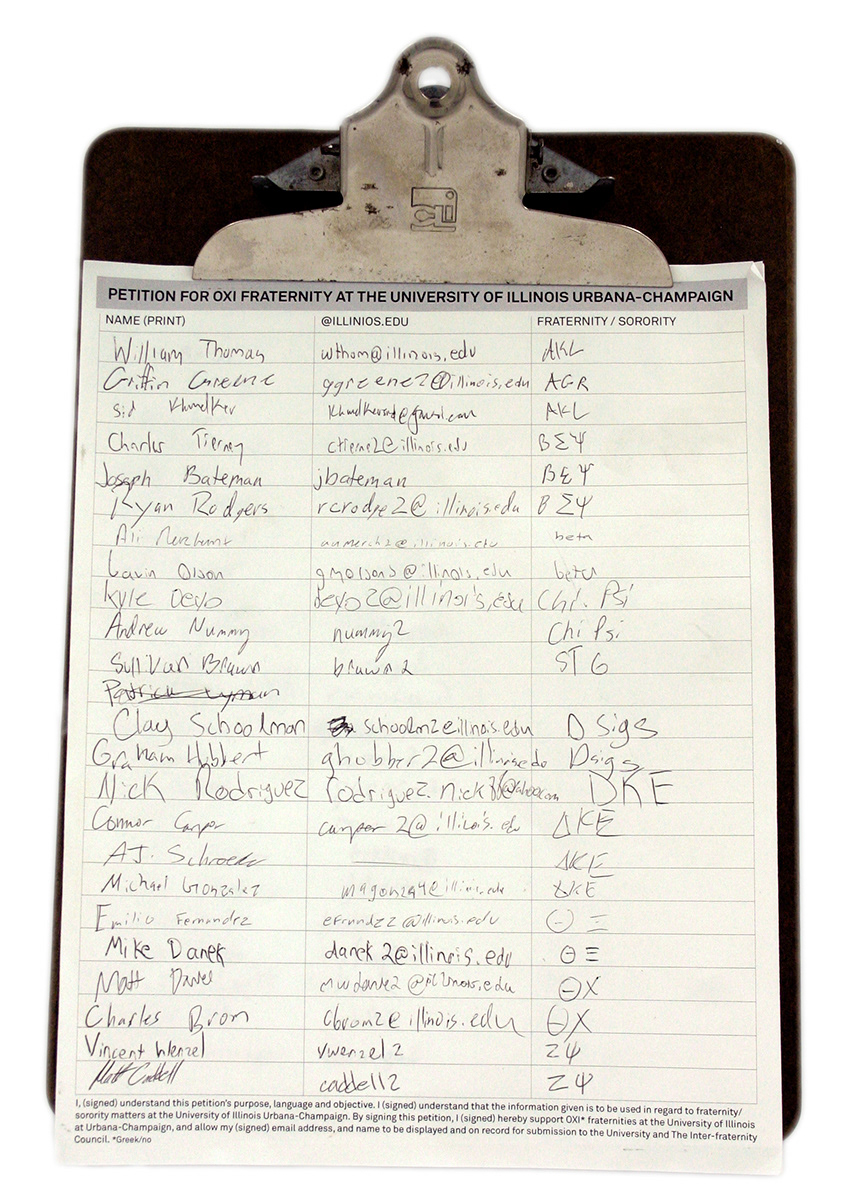 PETITION FOR OXI FRATERNITY AT THE UNIVERSITY OF ILLINOIS URBANA-CHAMPAIGN
NAME (PRINT) @ILLINIOS.EDU FRATERNITY / SORORITY
William Thomas wthom@illinois.edu AKL
Griffin Greene ggreene2@illinois.edu AGR
Sid AKL
Charles Tierney ctierne2@illinois.edu ΒΣΨ
Joseph Bateman jbateman ΒΣΨ
Ryan Rodgers rcrodge2@illinois.edu ΒΣΨ
Ali Merchant anmerch2@illinois.edu beta
Gavin Olson gmolson3@illinois.edu beta
Kyle Deyo deyo2@illinois.edu Chi. Psi
Andrew Nummy nummy2 Chi Psi
Sullivan Brawn brawn2 STG
Clay Schoolman schoolm2@illnois.edu D Sigs
Graham ghobber2@illinoisedu Dsigs
Nick Rodriguez DKE
Connor Camper camper2@illinois.edu ΔKE
AJ. Schroeder ΔKE
Michael Gonzalez magonza4@illinois.edu ΔKE
Emilio Fernandez efrundz2@illinois.edu Θ Ξ
Mike Danek danek2@illinois.edu Θ Ξ
Matt @illinois.edu ΘX
Charles Brom cbrom2@illinois.edu ΘX
Vincent Wenzel vwenzel2 ΖΨ
Matt Caddell caddell2 ΖΨ
I, (signed) understand this petition's purpose, language and objective. I (signed) understand that the information given is to be used in regard to fraternity/
sorority matters at the University of Illinois Urbana-Champaign. By signing this petition, I (signed) hereby support OXI* fraternities at the University of Illinois
at Urbana-Champaign, and allow my (signed) email address, and name to be displayed and on record for submission to the University and The Inter-fraternity
Council. *Greek/no